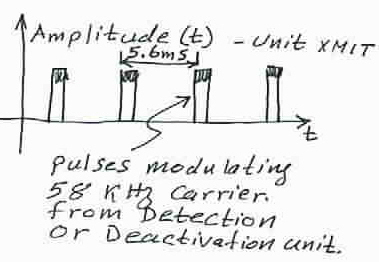 Amplitude (t) - Unit XMIT
5.6ms
t
pulses modulating
58 KHz Carrier.
from Detection
or Deactivation unit.